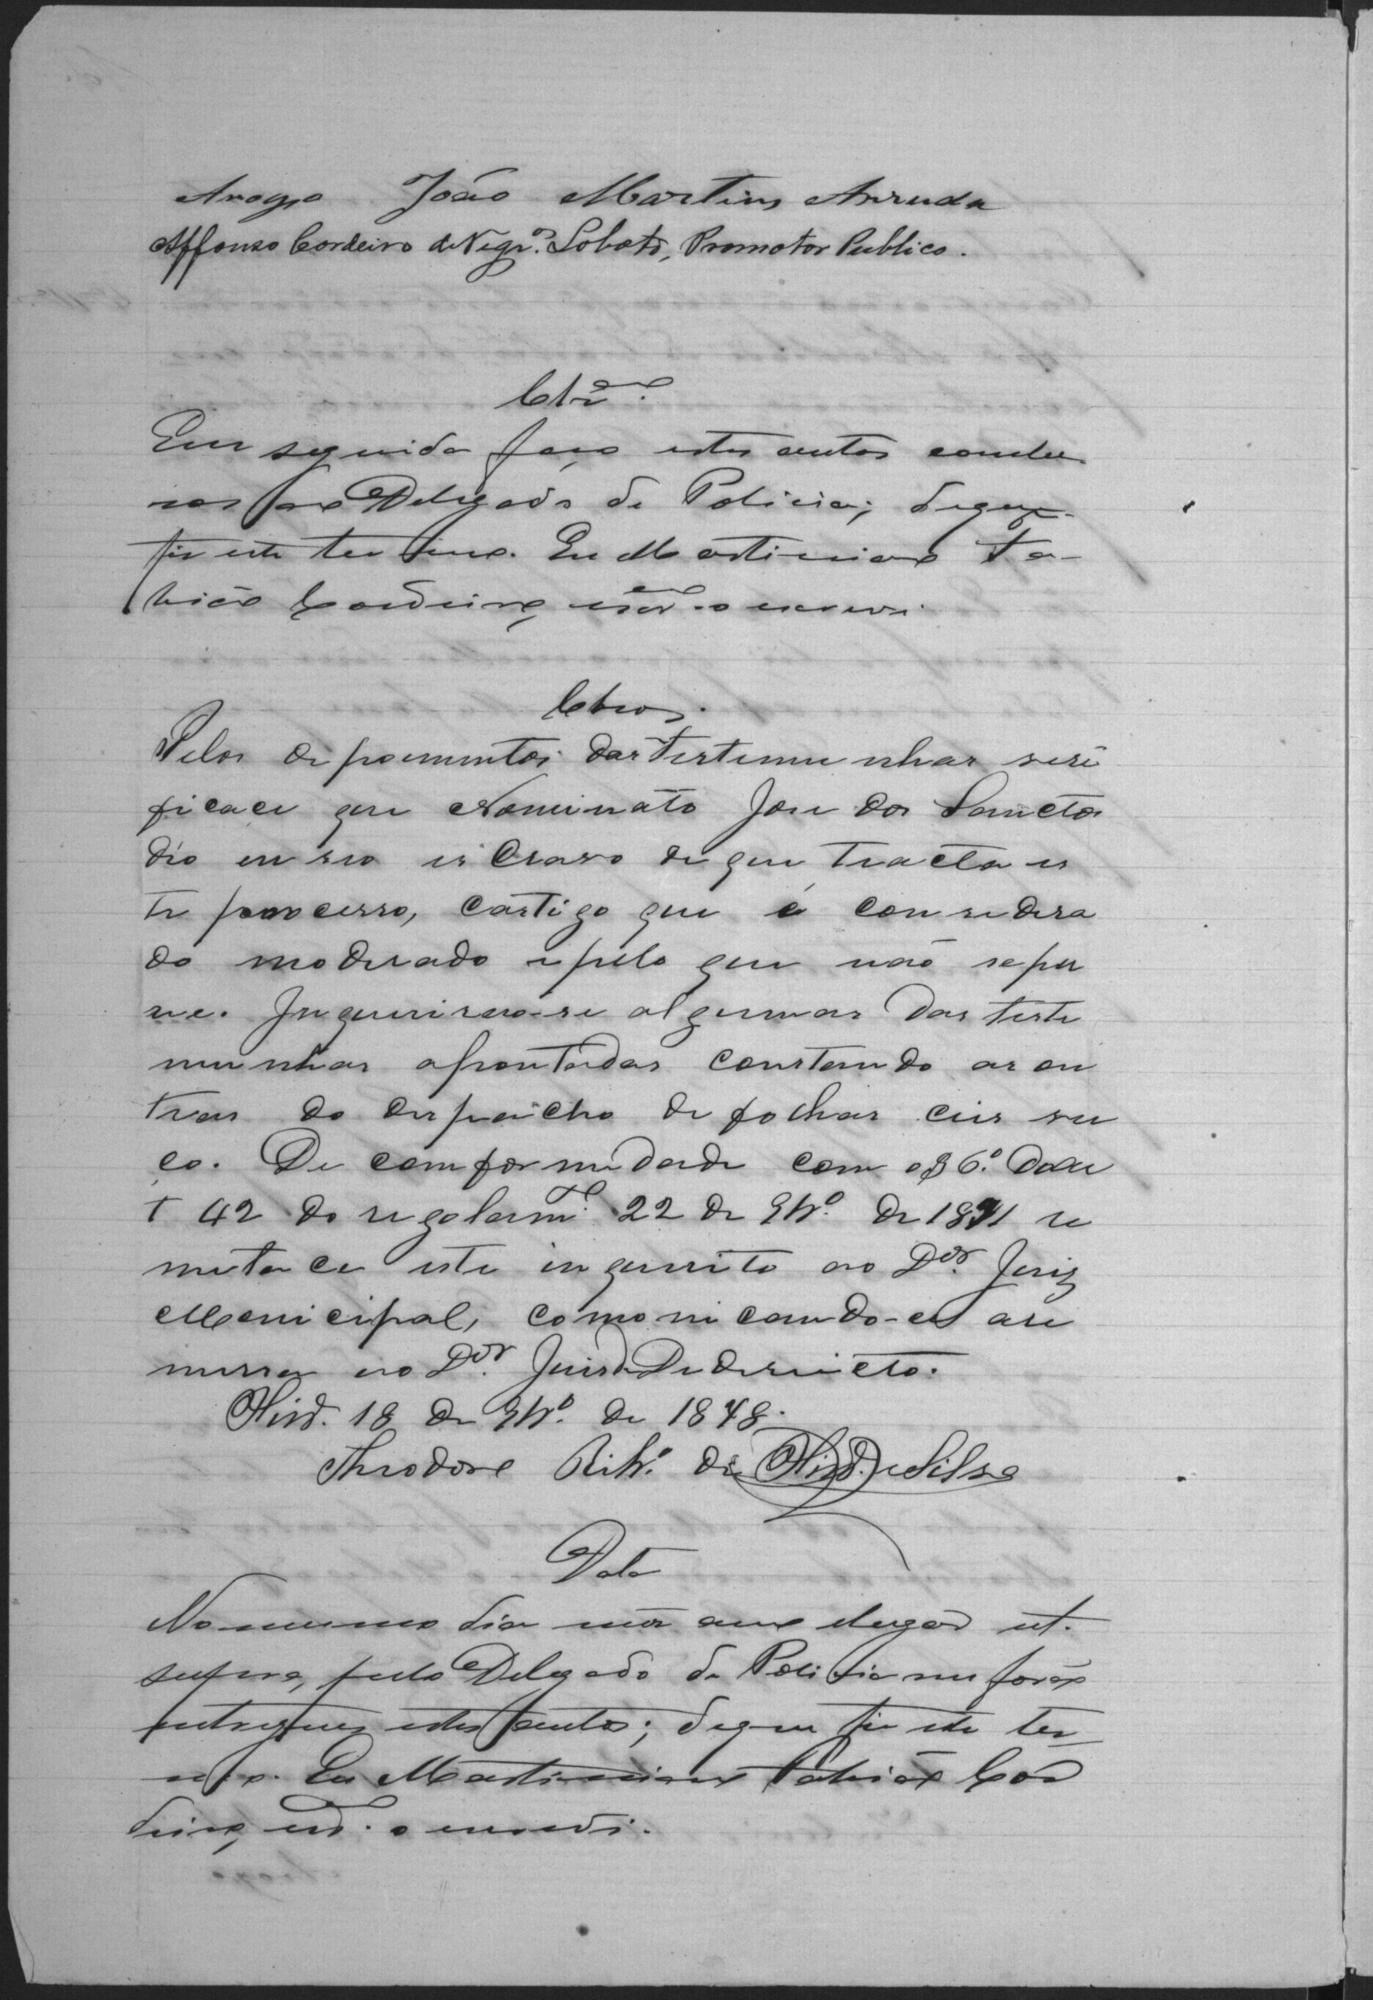 Arogo João Martins Arruda
Affonso Cordeiro de Negr.os Lobato, Promotor Publico.
Cls.ão
Em seguida faço estes autos conclu-
sos ao Delegado de Policia; do que
fiz este termo. Eu Martiniano Ta-
birão Cordeiro, escr.ão o escrevi.
Clsos.
Pelos depoimentos das testemunhas veri
ficace que Nominato Jose dos Sanctos
dio em seo escravo de que tracta es
te processo, castigo que é considera
do moderado e pelo que não se pu
ne. Inquirirão-se algumas das teste
munhas apontadas constando as ou
tras do despacho de folhas cins su
co. De comformidade com o § 6.º do ar
t 42 do regolam.to 22 de 9br.º de 1871 re
meta ce este inquerito ao D.or Juiz
Municipal, comonicando-ce a re
messa ao D.or Juis de Dereicto.
Olivr.a 18 de 9br.º de 1878.
Theodoro Rib.º de Olivr.a e Silva
Data
No mesmo dia mês anno e lugar ut
supra, pelo Delegado de Policia me forão
entregues estes autos; do que fiz este ter-
mo. Eu Martiniano Tabirão Cor
deiro, escr.ão o escrevi.